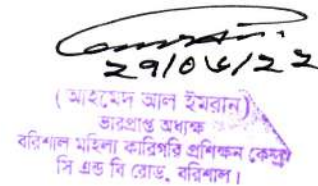 ২৭/০৬/২২
(আহমেদ আল ইমরান)
ভারপ্রাপ্ত অধ্যক্ষ
বরিশাল মহিলা কারিগরি প্রশিক্ষন কেন্দ্র
সি এন্ড বি রোড, বরিশাল।